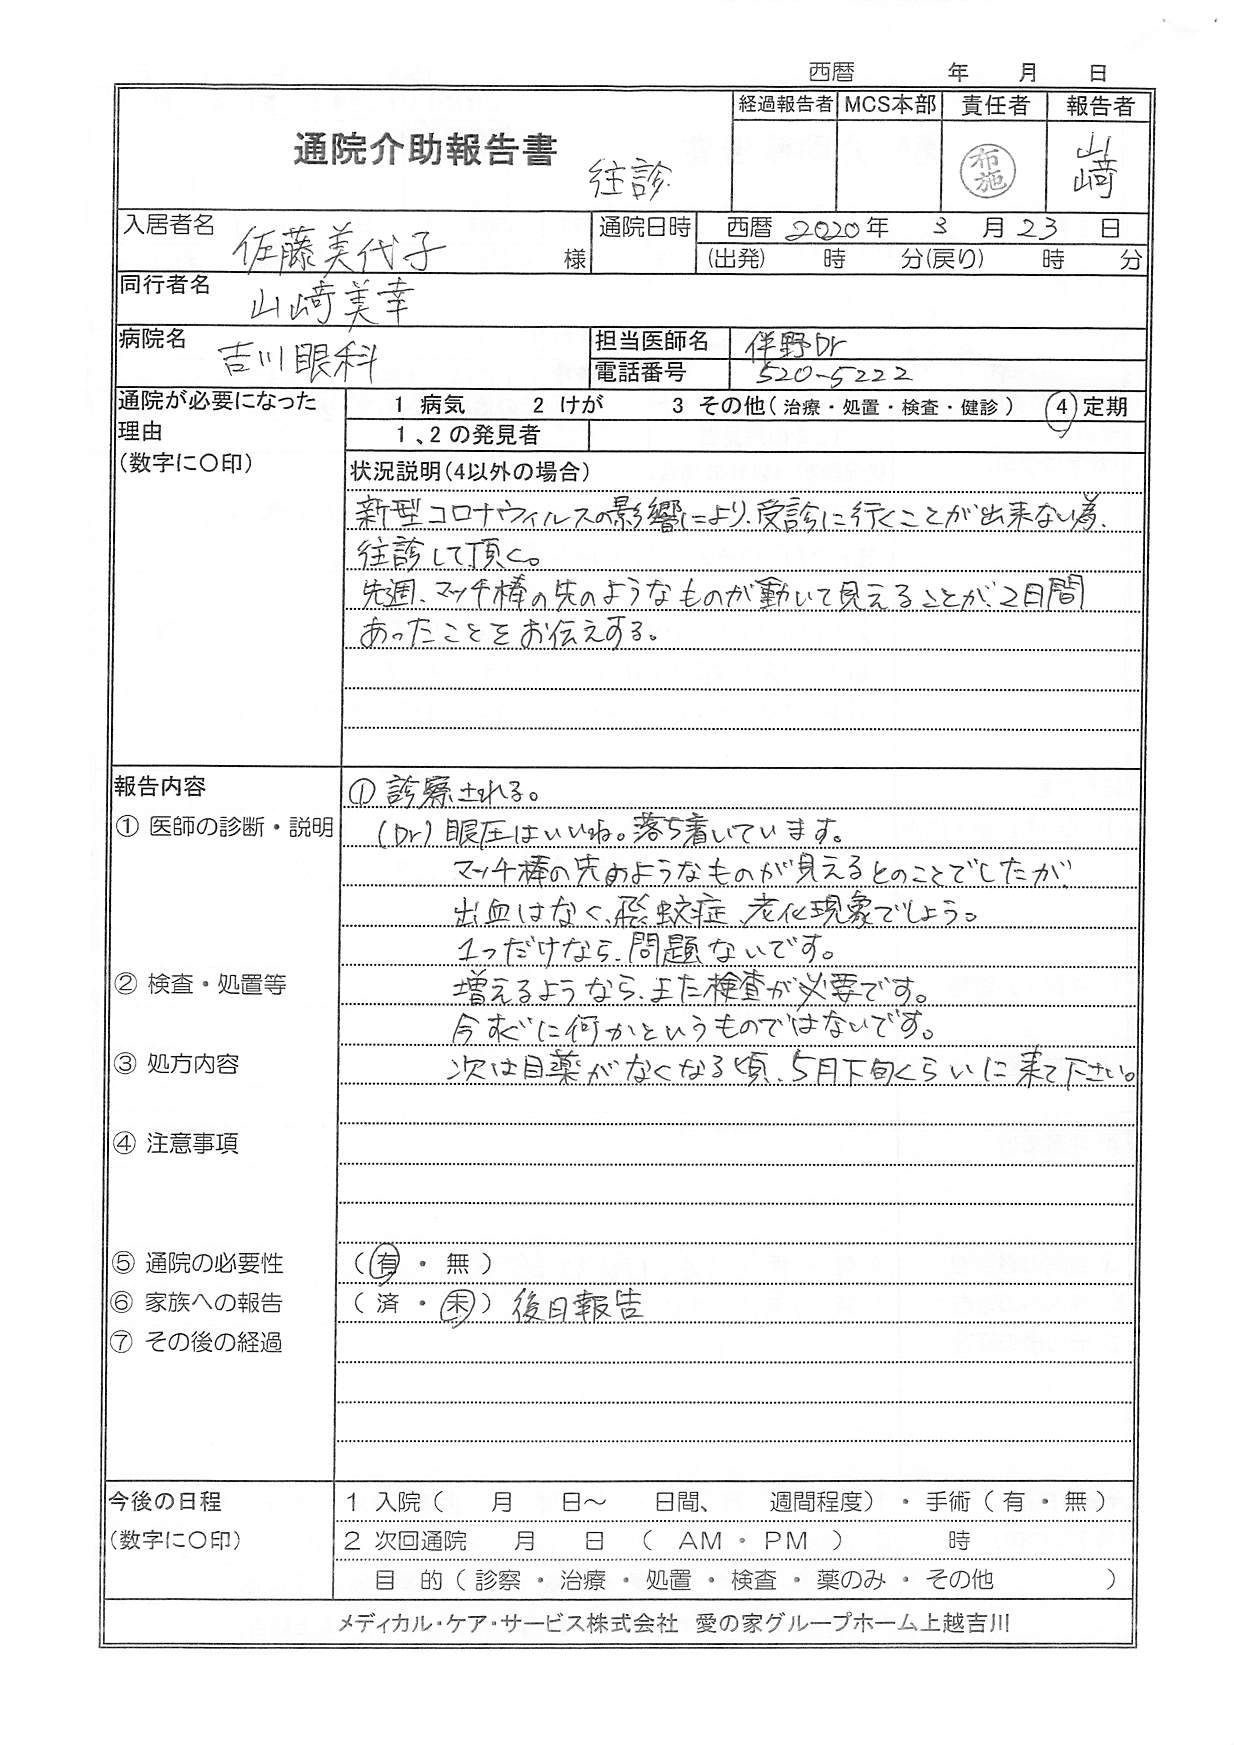 西暦　　年　月　日
経過報告者 MCS本部 責任者 報告者
通院介助報告書 往診
布施
山﨑
入居者名 佐藤美代子 様
通院日時 西暦 2020年 3月23日
(出発) 時 分(戻り) 時 分
同行者名 山﨑美幸
病院名 吉川眼科
担当医師名 伴野Dr
電話番号 520-5222
通院が必要になった
理由
(数字に〇印)
1 病気 2 けが 3 その他(治療・処置・検査・健診) ④定期
1、2の発見者
状況説明(4以外の場合)
新型コロナウィルスの影響により、受診に行くことが出来ない為、
往診して頂く。
先週、マッチ棒の先のようなものが動いて見えることが、2日間
あったことをお伝えする。
報告内容
① 診察される。
① 医師の診断・説明
(Dr) 眼圧はいいね。落ち着いています。
マッチ棒の先のようなものが見えるとのことでしたが、
出血はなく、飛蚊症、老化現象でしょう。
1つだけなら、問題ないです。
② 検査・処置等
増えるようなら、また検査が必要です。
今すぐに何かというものではないです。
③ 処方内容
次は目薬がなくなる頃、5月下旬くらいに来て下さい。
④ 注意事項
⑤ 通院の必要性 (有・無)
⑥ 家族への報告 (済・未) 後日報告
⑦ その後の経過
今後の日程
(数字に〇印)
1 入院( 月 日～ 日間、 週間程度)・手術(有・無)
2 次回通院 月 日 (AM・PM) 時
目 的(診察・治療・処置・検査・薬のみ・その他 )
メディカル・ケア・サービス株式会社 愛の家グループホーム上越吉川